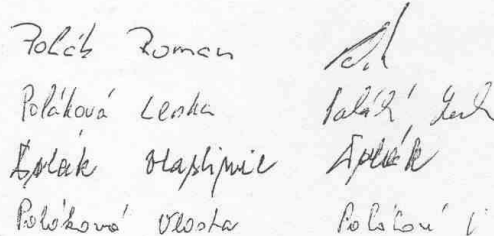 Polák Roman
Poláková Lenka
Polák Vlastimil Polák
Poláková Vlasta Poláková